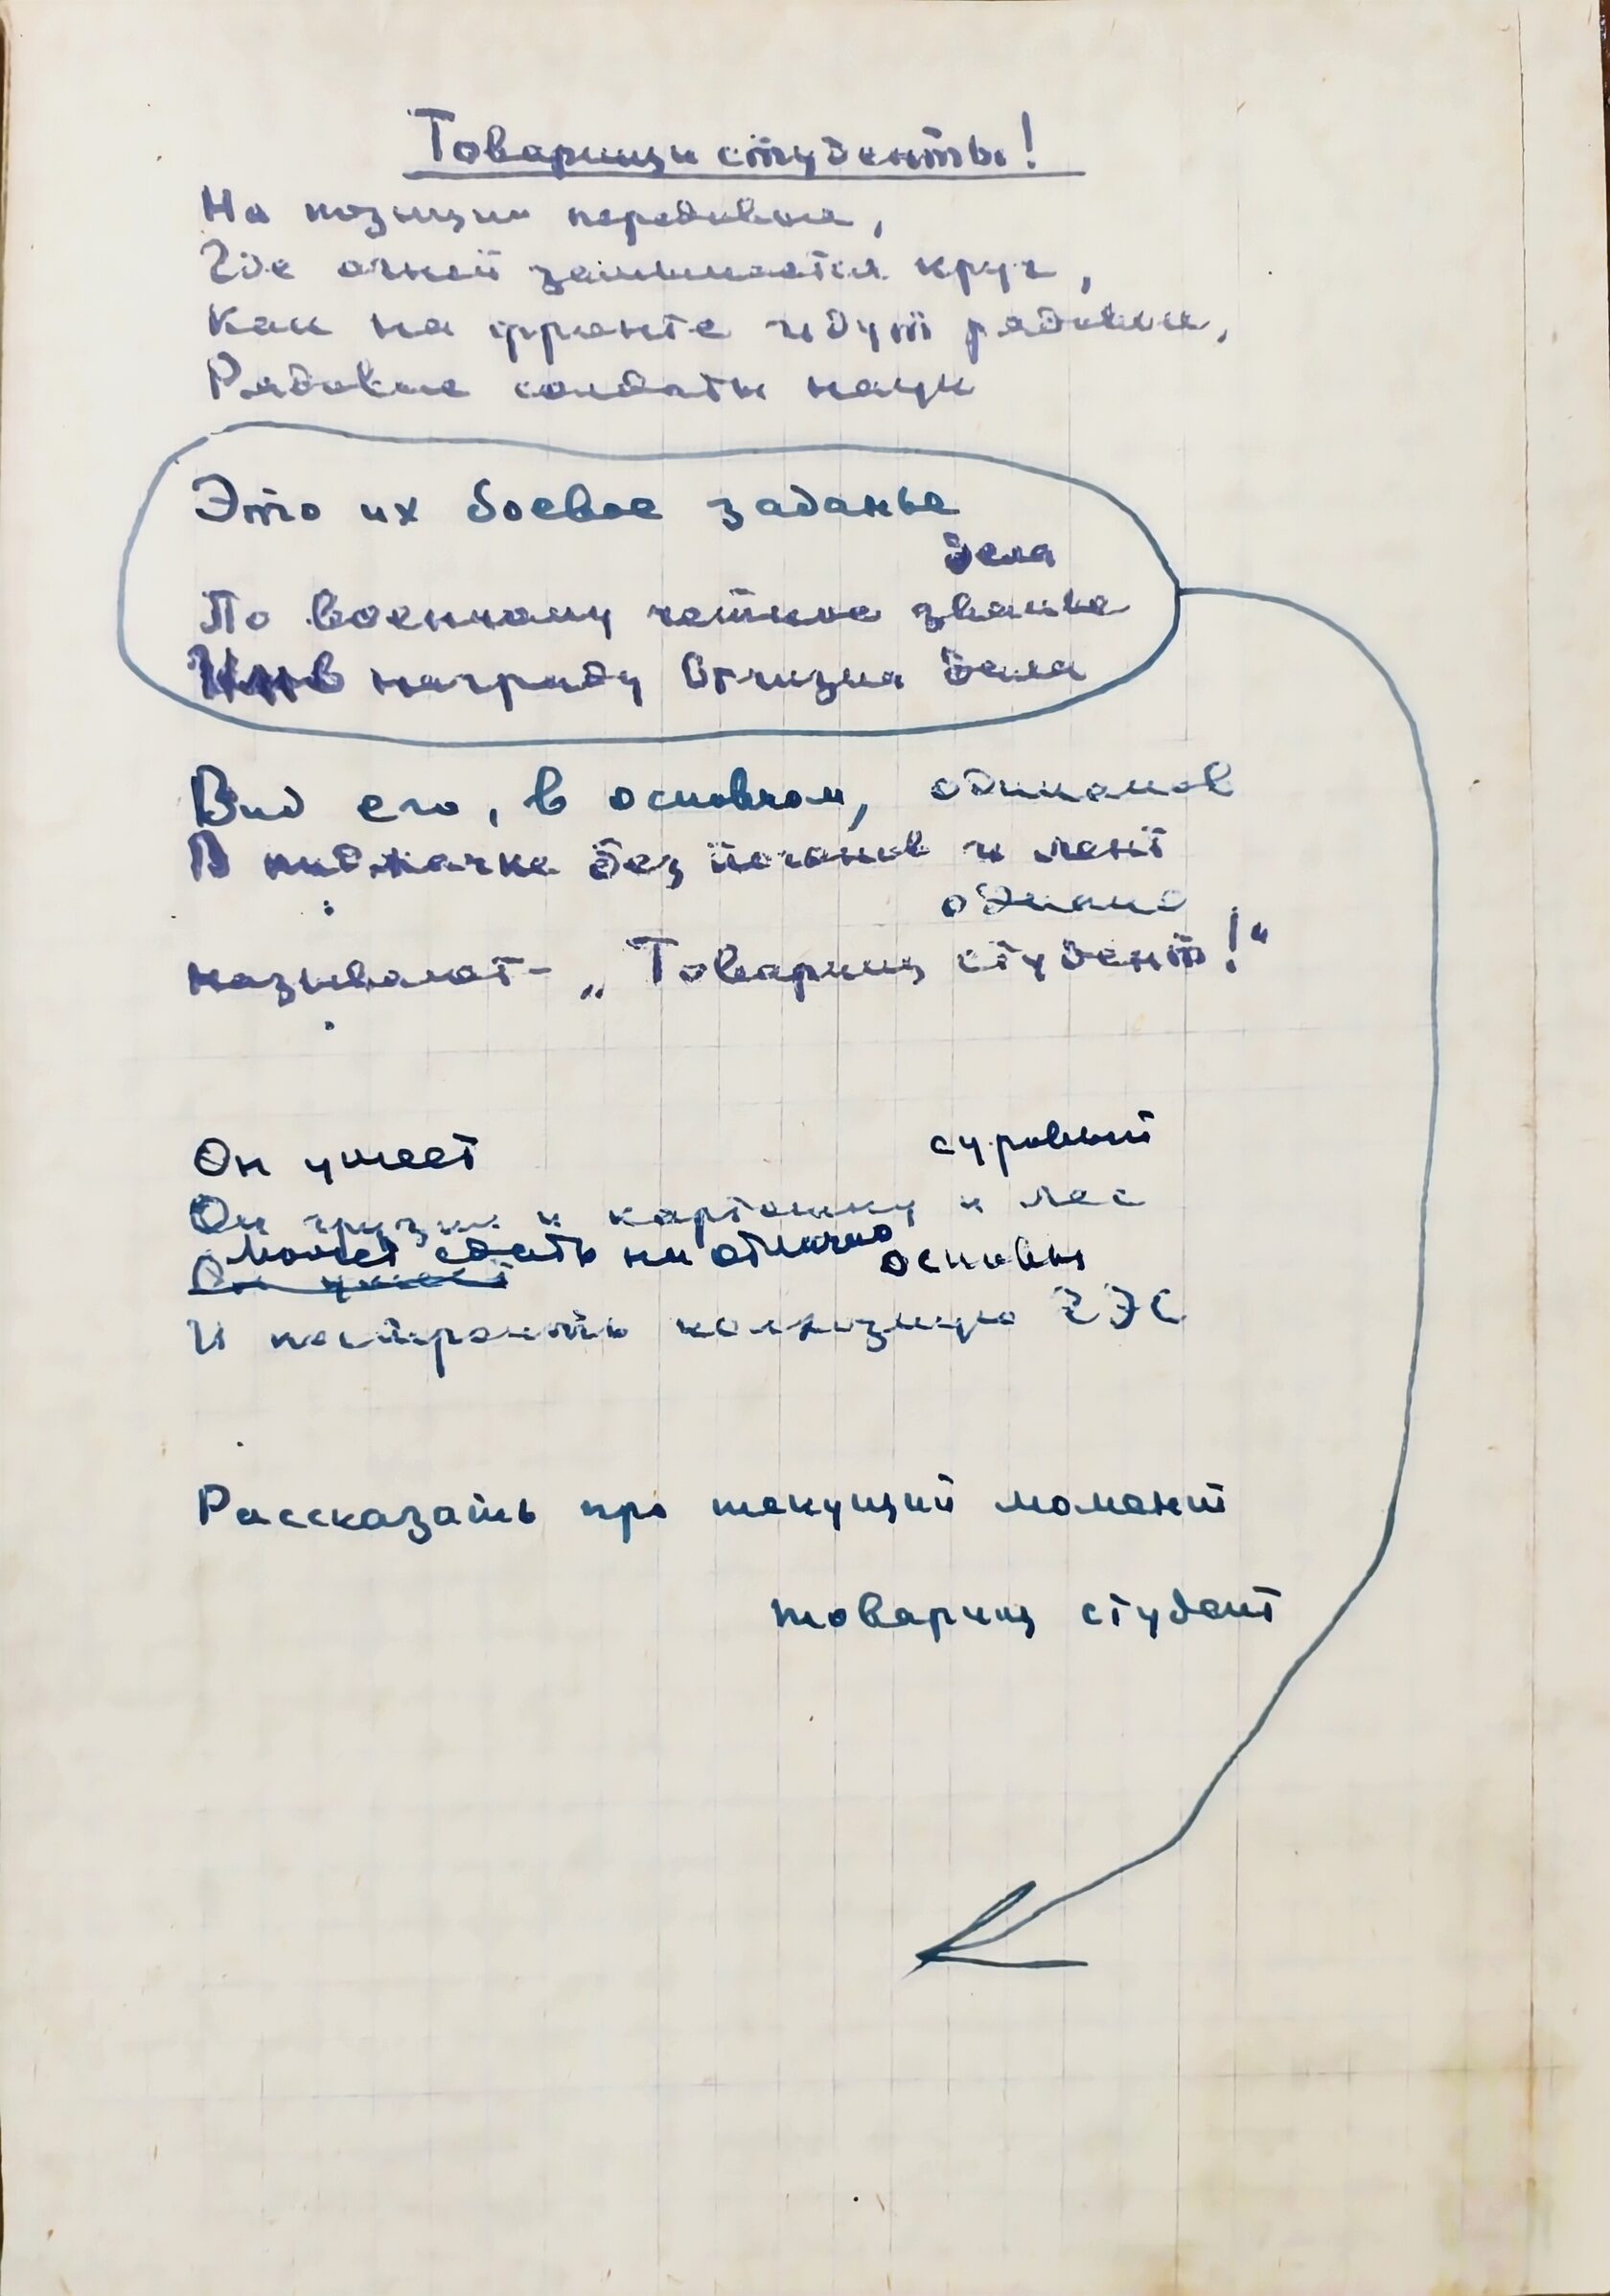 Товарищи студенты!
На позиции передовые,
Где огней занимается круг,
Как на фронте идут рядовые,
Рядовые солдаты наук
Это их боевое заданье
дела
По военному четкое званье
в награду Отчизна дала
Вид его, в основном, одинаков
В пиджачке без погонов и лент
однако
называют - „Товарищ студент!“
Он умеет суровый
Он грузил и картошку и лес
Может сдать на отлично основы
Он умеет
И построить колхозную ГЭС
Рассказать про текущий момент
товарищ студент